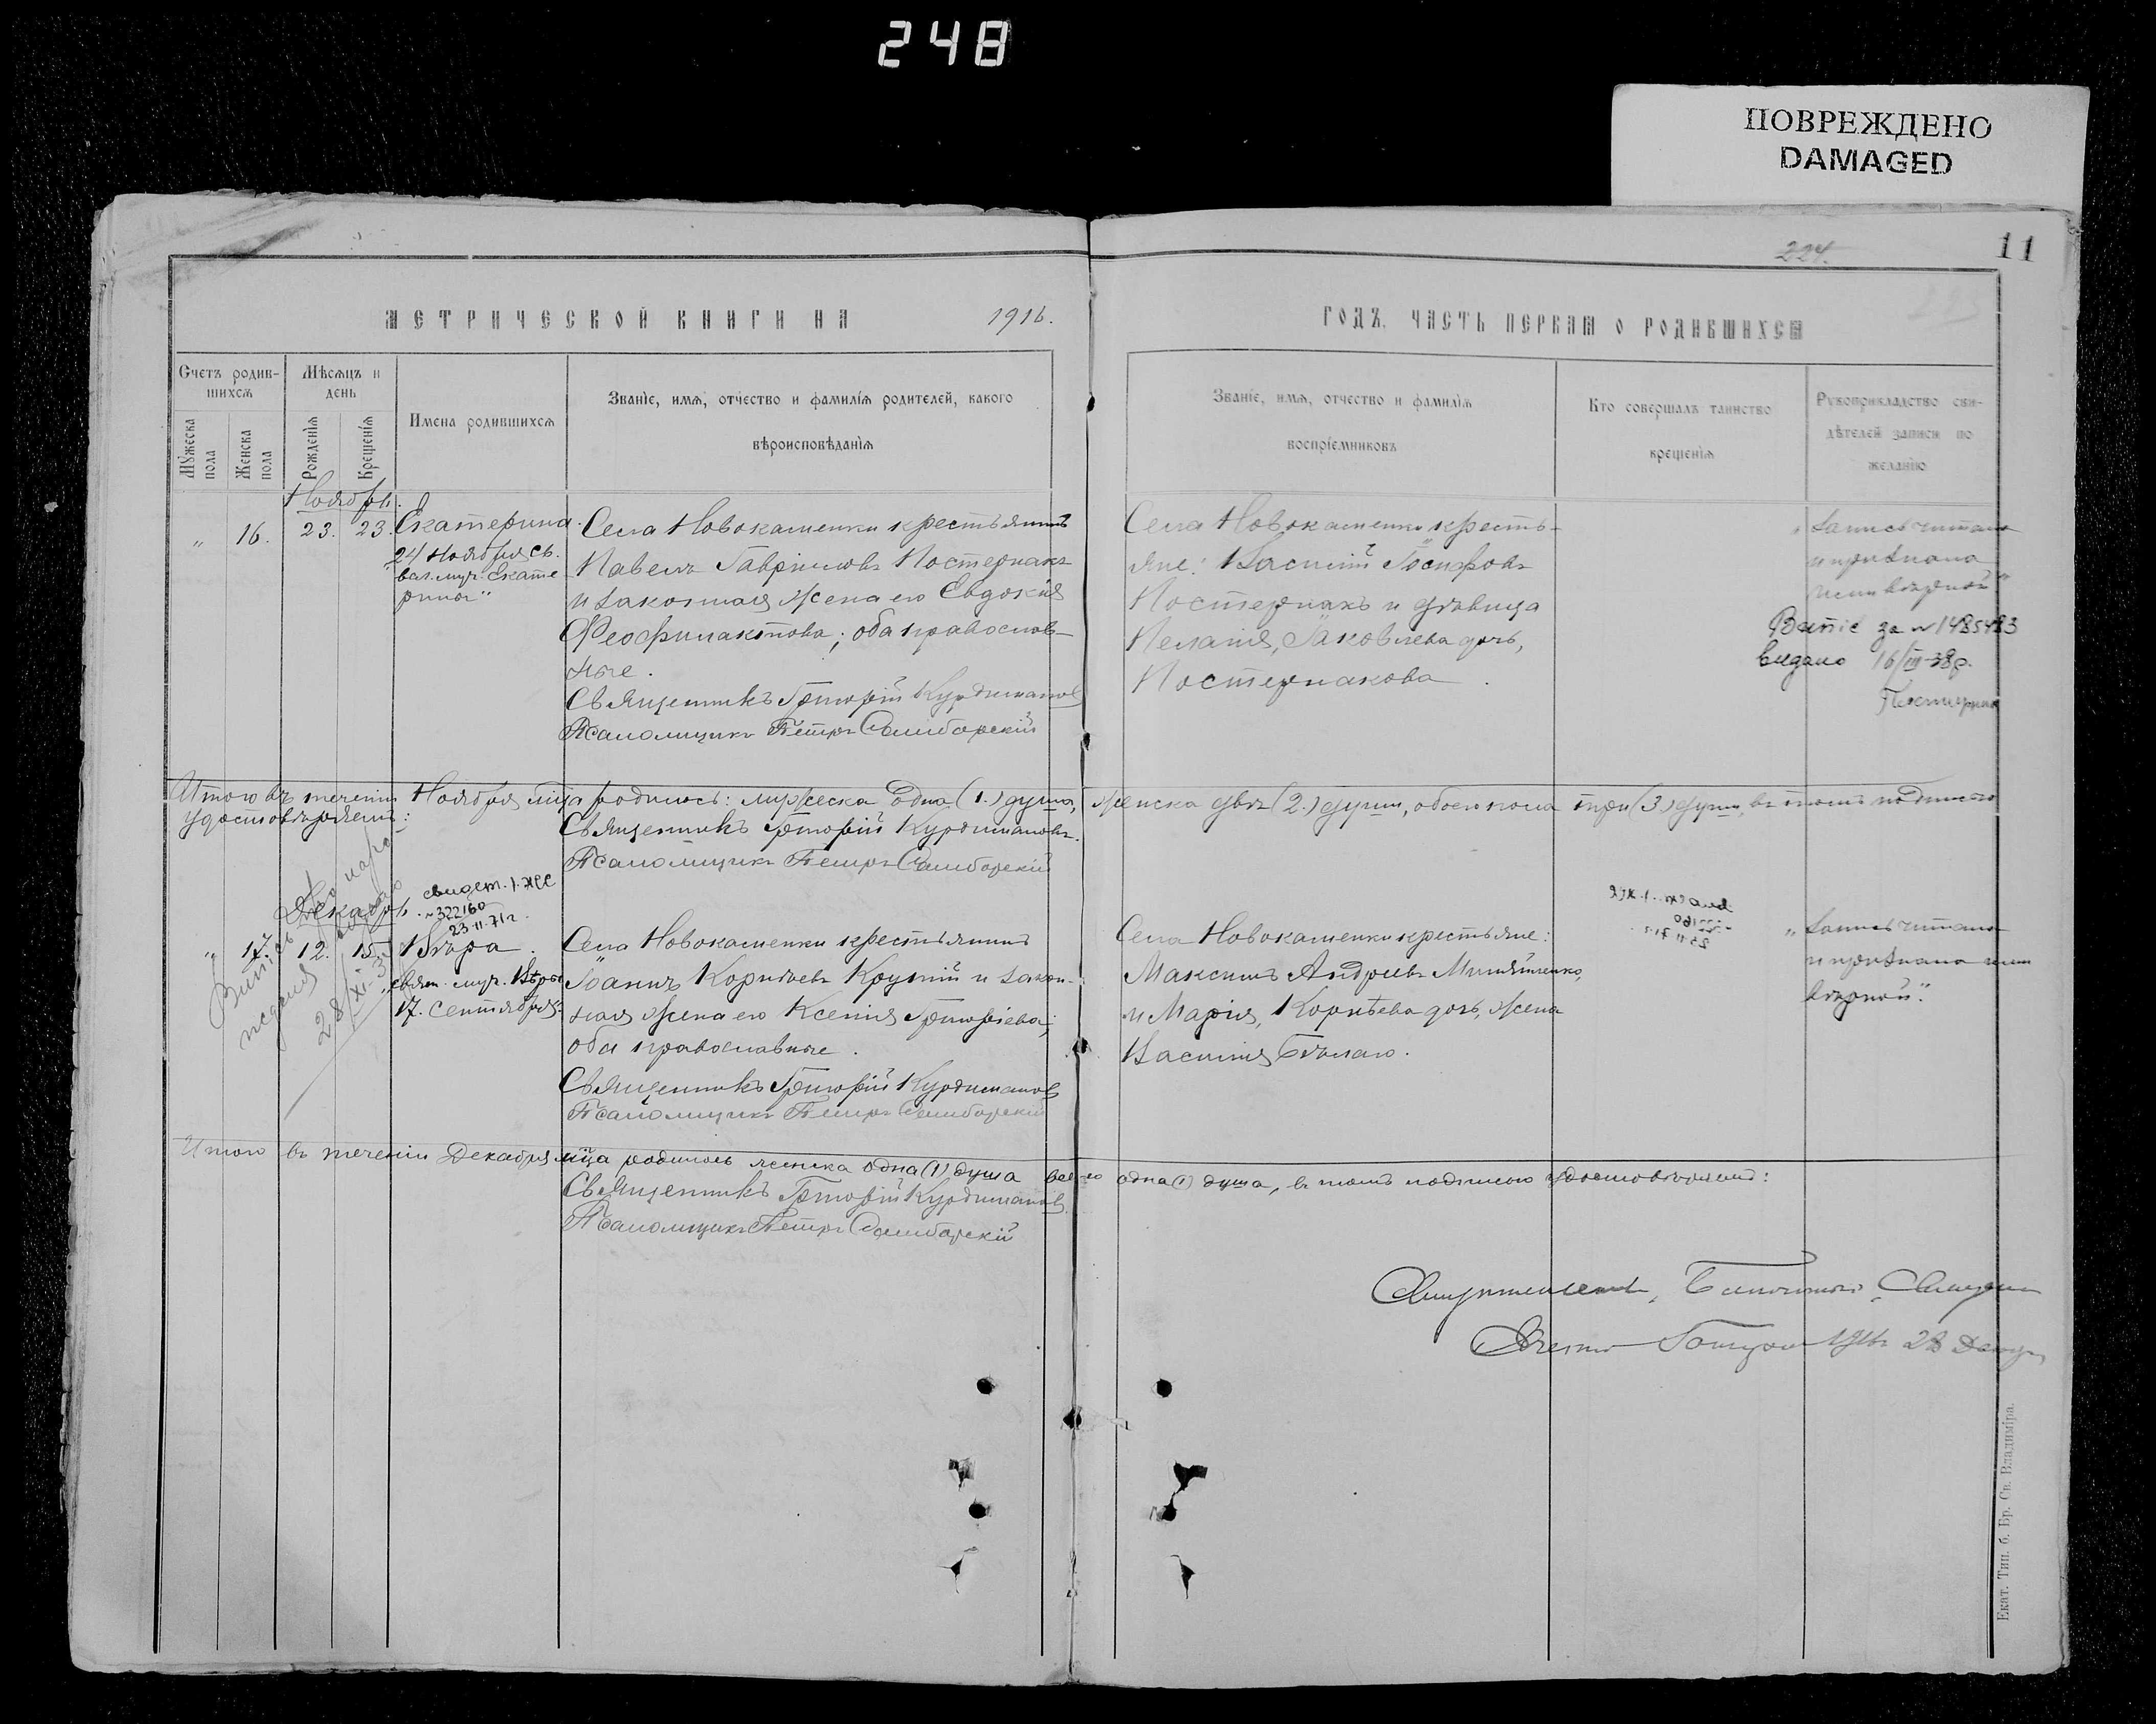 248
ПОВРЕЖДЕНО
DAMAGED
224.
11
МЕТРИЧЕСКОЙ КНИГИ НА 1916.
ГОДЪ, ЧАСТЬ ПЕРВАЯ О РОДИВШИХСЯ
Счетъ родив-
шихся
Мужеска пола
Женска пола
Мѣсяцъ и
день
Рожденія
Крещенія
Имена родившихся
Званіе, имя, отчество и фамилія родителей, какого
вѣроисповѣданія
Званіе, имя, отчество и фамилія
воспріемниковъ
Кто совершалъ таинство
крещенія
Рукоприкладство сви-
дѣтелей записи по
желанію
Ноябрь.
„ 16. 23. 23. Екатерина.
24 Ноября св.
вел. муч. Екате
рины"
Села Новокаменки крестьянинъ
Павелъ Гавріиловъ Постернакъ
и законная жена его Евдокія
Феофилактова; оба православ-
ные.
Священникъ Григорій Курдимановъ
Псаломщикъ Петръ Самборскій
Села Новокаменки кресть-
яне: Василій Іосифовъ
Постернакъ и дѣвица
Пелагія, Іаковлева дочь,
Постернакова.
„Запись читана
и признана
вѣрной"
Витяг за № 1485483
видано 16/III-38р.
Итого въ теченіи Ноября м̃ца родилось: мужеска одна (1.) душа, женска двѣ (2.) души, обоего пола три (3.) души, въ томъ подписью
удостовѣряемъ:
Священникъ Григорій Курдимановъ.
Псаломщикъ Петръ Самборскій
Декабрь.
свидет. 1-ЖС
№322160
23-11-71г.
„ 17. 12. 15. Вѣра.
„свят. муч. Вѣры
17. Сентября"
28/XI-3
Села Новокаменки крестьянинъ
Іоаннъ Корнѣевъ Крупій и закон-
ная жена его Ксенія Григоріева;
оба православные.
Священникъ Григорій Курдимановъ
Псаломщикъ Петръ Самборскій
Села Новокаменки крестьяне:
Максимъ Андреевъ
и Марія, Корнѣева дочь, жена
Василія Бѣлаго.
„Запись читана
и признана
вѣрной".
Итого въ теченіи Декабря м̃ца родилось женска одна (1) душа всего одна (1) душа, въ томъ подписью удостовѣряемъ:
Священникъ Григорій Курдимановъ.
Псаломщикъ Петръ Самборскій
Екат. Тип. б. Бр. Св. Владиміра.